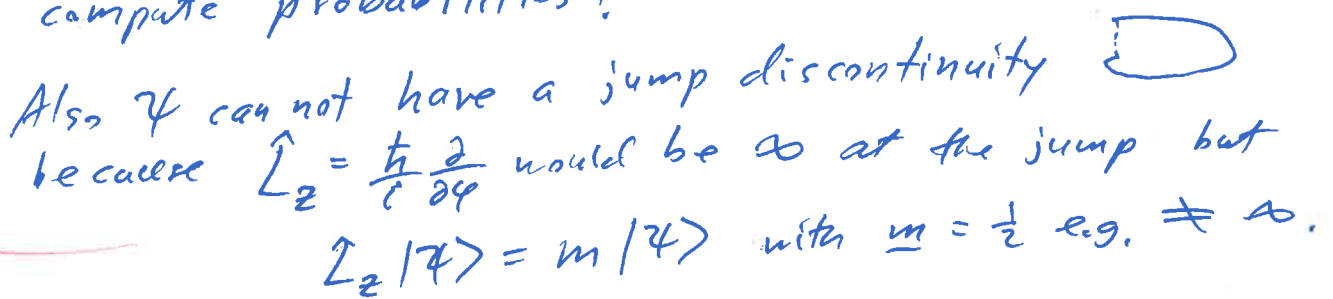 compute probabilities!
Also ψ can not have a jump discontinuity
because L̂_z = ħ/i ∂/∂φ would be ∞ at the jump but
L̂_z |ψ> = m |ψ> with m = 1/2 e.g. ≠ ∞.